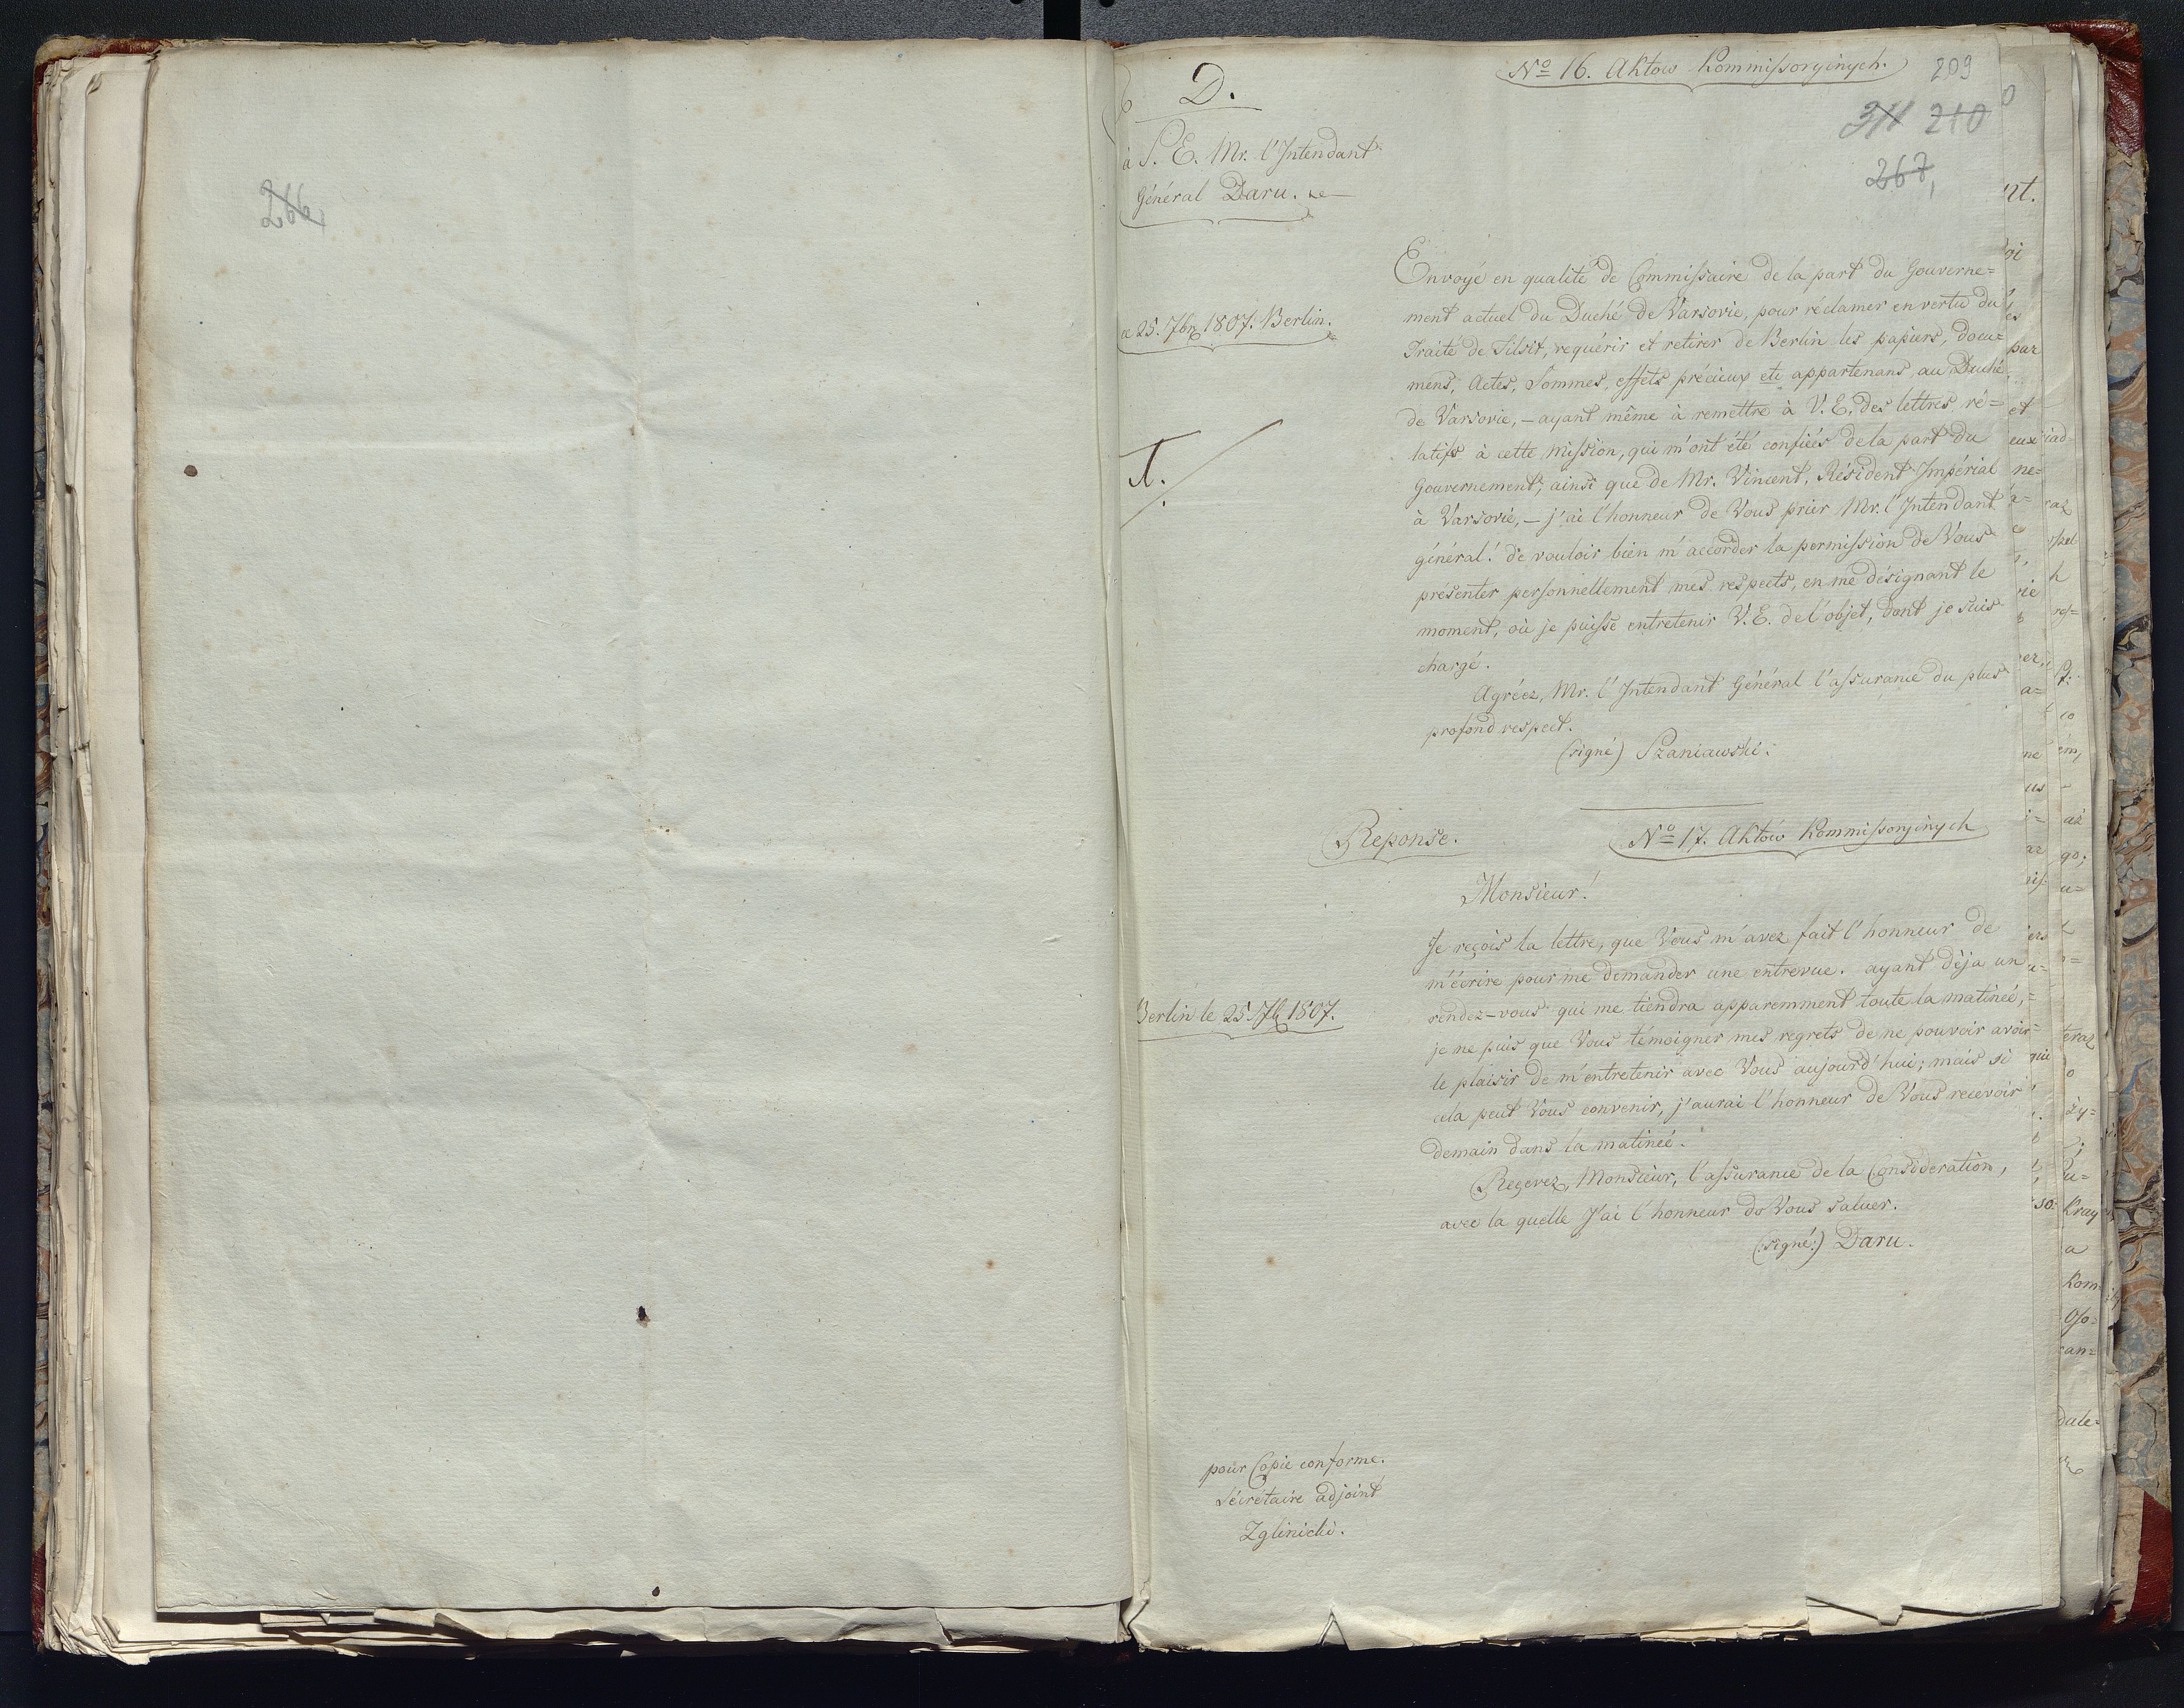 266
D.
No 16. Aktow Kommissoryinych.
209
311 210
267
à S. E. Mr. l'Intendant
Général Daru.
25. 7br 1807. Berlin.
Envoyé en qualité de Commissaire de la part du Gouverne=
ment actuel du Duché de Varsovie, pour réclamer en vertu du
Traité de Tilsit, requérir et retirer de Berlin les papiers, docu=
mens, Actes, Sommes, effets précieux etc appartenans au Duché
de Varsovie, – ayant même à remettre à V. E. des lettres ré=
latifs à cette Mission, qui m'ont été confiées de la part du
Gouvernement, ainsi que de Mr. Vincent, Résident Impérial
à Varsovie, – j'ai l'honneur de Vous prier Mr. l'Intendant
général! de vouloir bien m'accorder la permission de Vous
présenter personnellement mes respects, en me désignant le
moment, où je puisse entretenir V. E. de l'objet, dont je suis
chargé.
Agréez, Mr. l'Intendant Général l'assurance du plus
profond respect.
(signé) Szaniawski.
Reponse.
No 17. Aktów Kommissoryinych
Monsieur!
Berlin le 25. 7b 1807.
Je reçois la lettre, que Vous m'avez fait l'honneur de
m'écrire pour me demander une entrevue. ayant déja un
rendez-vous qui me tiendra apparemment toute la matineé,
je ne puis que Vous témoigner mes regrets de ne pouvoir avoir
le plaisir de m'entretenir avec Vous aujourd'hui; mais si
cela peut Vous convenir, j'aurai l'honneur de Vous recevoir
demain dans la matineé.
Reçevez, Monsieur, l'assurance de la Consideration,
avec la quelle J'ai l'honneur de Vous saluer.
(signé:) Daru.
pour Copie conforme.
Sécrétaire adjoint
Zglinicki.